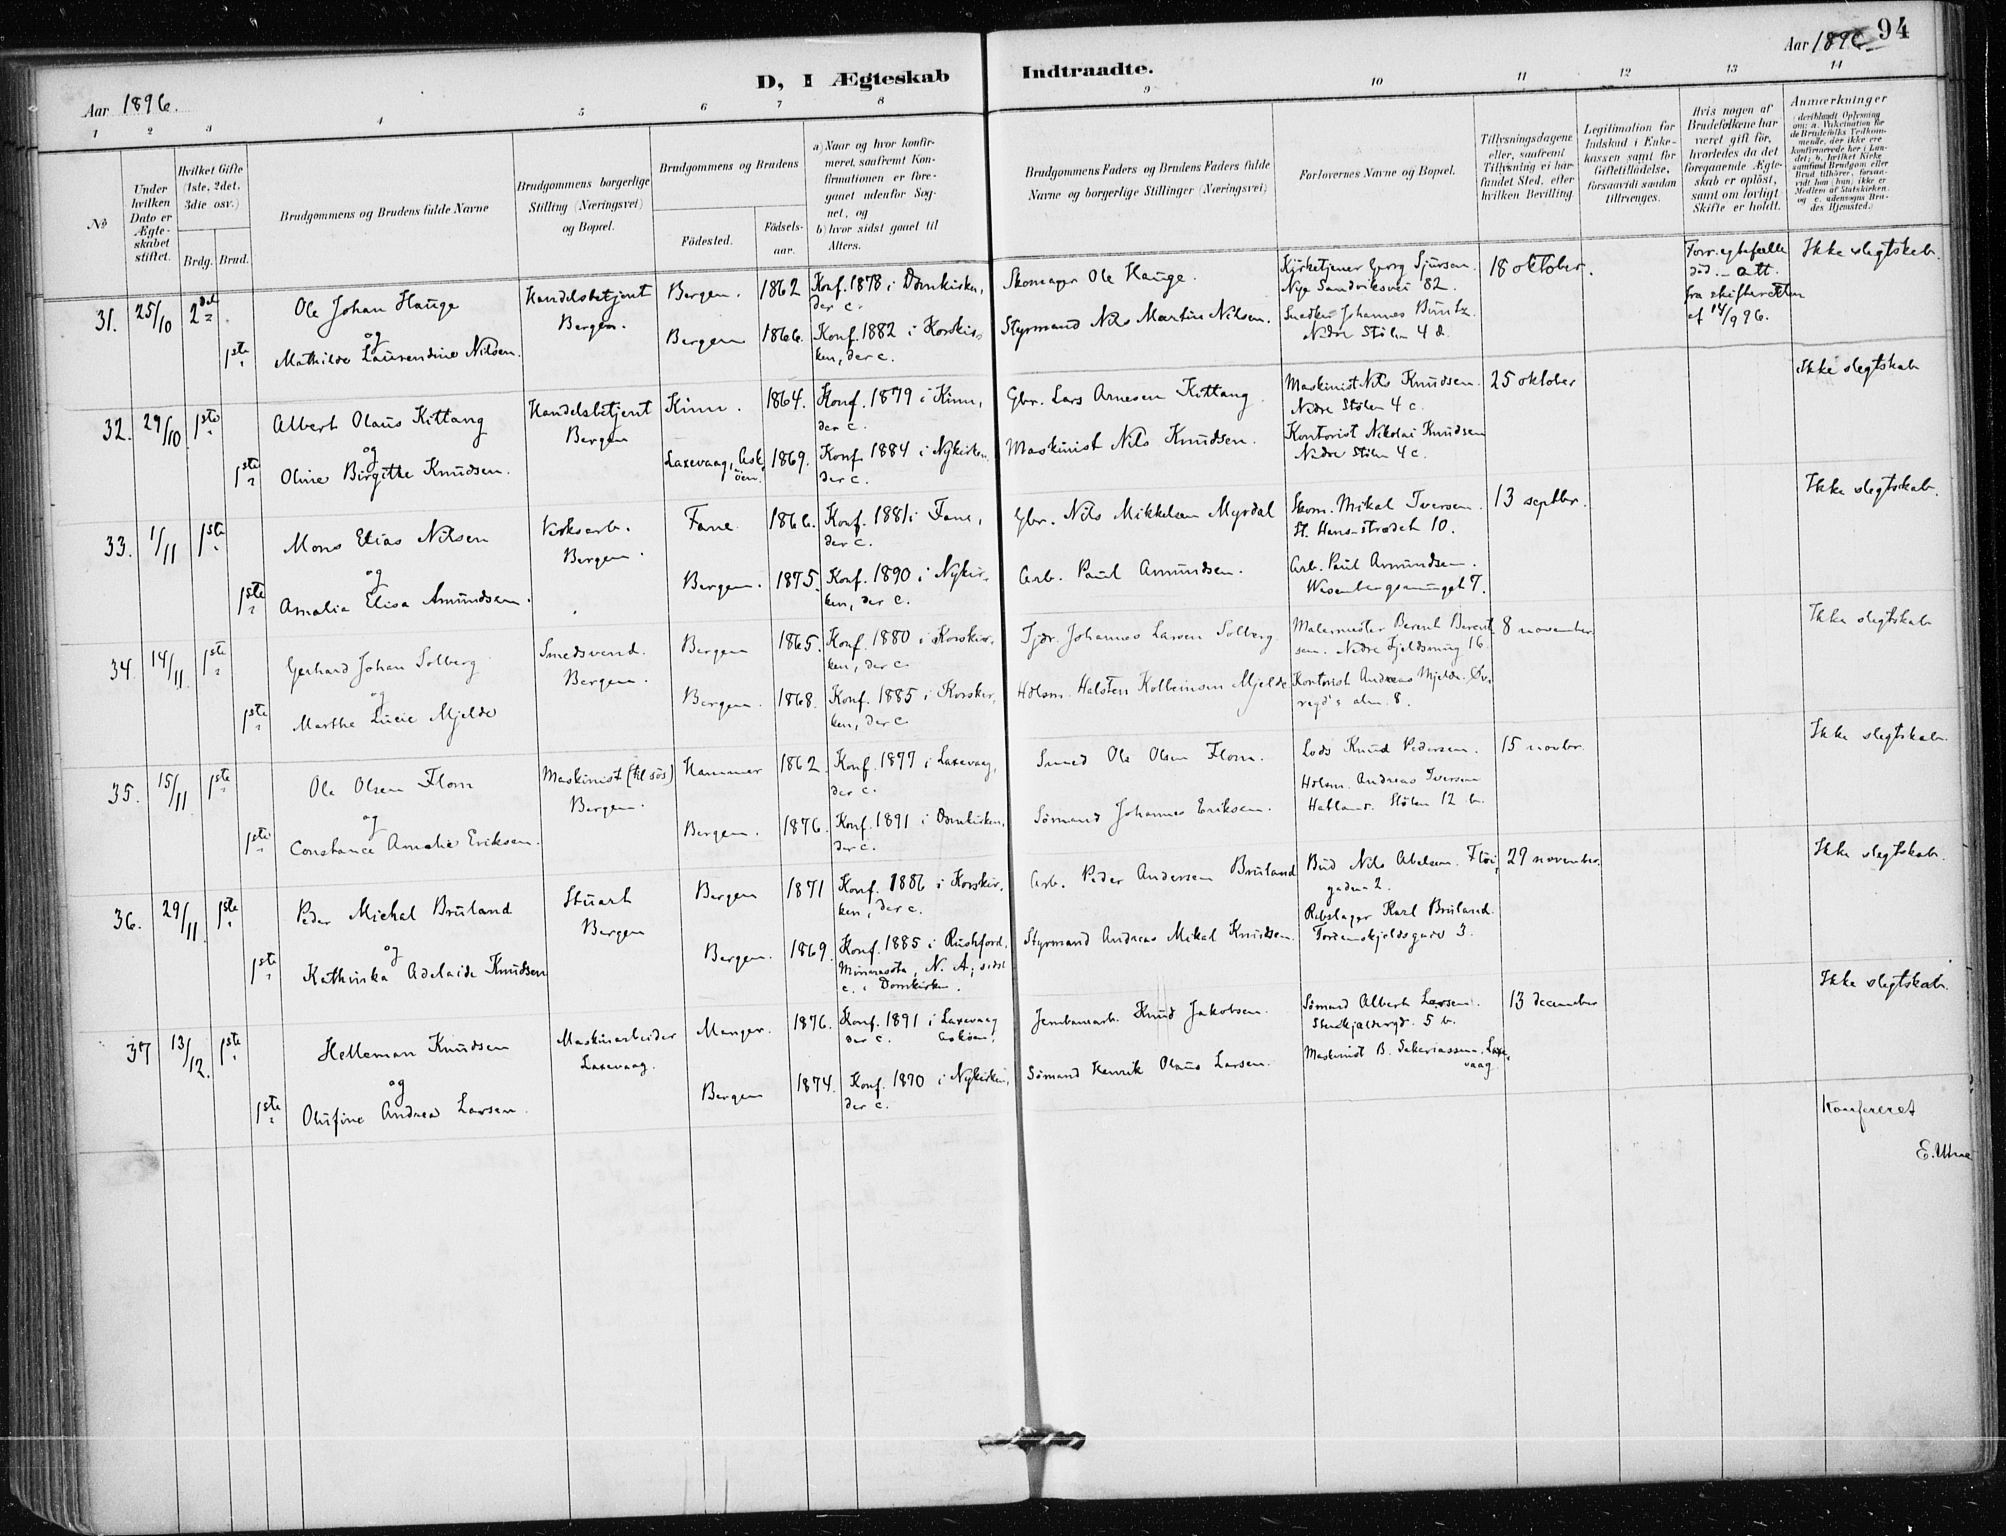 Aar 1896.
D, I Ægteskab Indtraadte.
Aar 1896. 94
1 2 3 4 5 6 7 8 9 10 11 12 13 14
No
Under
hvilken
Dato er
Ægte-
skabet
stiftet.
Hvilket Gifte
(1ste, 2det,
3die osv.)
Brdg. Brud.
Brudgommens og Brudens fulde Navne
Brudgommens borgerlige
Stilling (Næringsvei)
og Bopæl.
Brudgommens og Brudens
Födested.
Födsels-
aar.
a) Naar og hvor konfir-
meret, saafremt Kon-
firmationen er fore-
gaaet udenfor Sog-
net, og
b) hvor sidst gaaet til
Alters.
Brudgommens Faders og Brudens Faders fulde
Navne og borgerlige Stillinger (Næringsvei)
Forlovernes Navne og Bopæl.
Tillysningsdagene
eller, saafremt
Tillysning ei har
fundet Sted, efter
hvilken Bevilling
Legitimation for
Indskud i Enke-
kassen samt for
Giftetilladelse,
forsaavidt saadan
tiltrænges.
Hvis nogen af
Brudefolkene har
været gift før,
hvorledes da det
foregaaende Ægte-
skab er oplöst,
samt om lovligt
Skifte er holdt.
Anmærkninger
(deriblandt Oplysning
om: a. Vakcination for
de Brudefolks Vedkom-
mende, der ikke ere
konfirmerede her i Lan-
det; b. hvilket Kirke
samfund Brudgom eller
Brud tilhører, forsaa-
vidt han (hun) ikke er
Medlem af Statskirken.
og c. udensogns Bru-
des Hjemsted.)
31. 25/10 2det Ole Johan Hauge Handelsbetjent Bergen. 1862 Konf. 1878 i Domkirken, Skomager Ole Hauge. Kirketjener Georg Sjursen. 18 oktober. Forr. egtefælle Ikke slegtskab.
og Bergen. der c. Nye Sandviksvei 82. död. – Att.
1ste Mathilde Laurendine Nilsen. Bergen 1866. Konf. 1882 i Korskir- Styrmand Nils Martin Nilsen. Snedker Johannes Buntz. fra skifteretten
ken, der c. Nedre Stölen 4 d. af 14/9 96.
32. 29/10 1ste Albert Olaus Kittang Handelsbetjent Kinn. 1864. Konf. 1879 i Kinn, Gbr. Lars Arnesen Kittang. Maskinist Nils Knudsen. 25 oktober Ikke slegtskab
og Bergen der c. Nedre Stölen 4 c.
1ste Oline Birgithe Knudsen. Laxevaag, Ask- 1869. Konf. 1884 i Nykirken. Maskinist Nils Knudsen. Kontorist Nikolai Knudsen
öen. der c. Nedre Stölen 4 c.
33. 1/11 1ste Mons Elias Nilsen Verksarb. Fane 1866. Konf. 1881 i Fane, Gbr. Nils Mikkelsen Myrdal Skom. Mikal Iversen. 13 septbr. Ikke slegtskab.
og Bergen. der c. St. Hans-strædet 10.
1ste Amalia Elisa Amundsen. Bergen. 1875. Konf. 1890 i Nykir- Arb. Paul Amundsen. Arb. Paul Amundsen.
ken, der c. Wesenbergsmuget 7.
34 14/11 1ste Gerhard Johan Solberg Smedsvend. Bergen 1865. Konf. 1880 i Korskir- Johannes Larsen Solberg Malermester Berent Berent- 8 november Ikke slegtskab
og Bergen. ken, der c. sen. Nedre Fjeldsmug 16.
1ste Marthe Lucie Mjelde Bergen. 1868. Konf. 1885 i Korskir- Hdlsm. Halsten Kolbeinsen Mjelde Kontorist Andreas Mjelde. Öv-
ken, der c. regd's alm. 8.
35. 15/11 1ste Ole Olsen Flom Maskinist (til sös) Hammer 1862. Konf. 1877 i Laxevaag, Smed Ole Olsen Flom. Lods Knud Pedersen. 15 novbr. Ikke slegtskab.
og Bergen. der c. Hdlsm. Andreas Iversen
1ste Constance Amalie Eriksen. Bergen. 1876. Konf. 1891 i Domkirken, Sömand Johannes Eriksen. Stölen 12 b.
der c.
36. 29/11 1ste Peder Michal Bruland Stuart Bergen 1871 Konf. 1886 i Korskir- Arb. Peder Andersen Bruland Bud Nils Abelsen. Flöi- 29 november. Ikke slegtskab.
og Bergen ken, der c. gaden 2.
1ste Kathinka Adelaide Knudsen Bergen. 1869. Konf. 1885 i Rushford, Styrmand Andreas Mikal Knudsen. Rebslager Karl Bruland.
Minnesota, N. A; sidst Tordenskjoldsgade 3.
c. i Domkirken.
37 13/12. 1ste Helleman Knudsen Maskinarbeider Manger. 1876. Konf. 1891 i Laxevaag Jernbanearb. Knud Jakobsen. Sömand Albert Larsen. 13 december Ikke slegtskab.
og Laxevaag. der c. Askøen. 5 b.
1ste Olufine Andrea Larsen. Bergen 1874. Konf. 1890 i Nykirken, Sömand Henrik Olaus Larsen. Maskinist B. Sakariassen. Laxe-
der c. vaag.
Konfereret
E. Utne